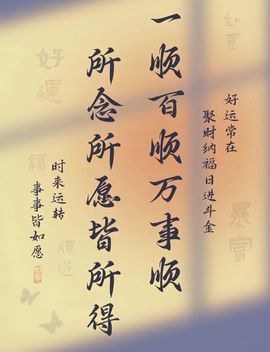 好运常在
聚财纳福日进斗金
一顺百顺万事顺
所念所愿皆所得
时来运转
事事皆如愿
如意
好運
暴富
順遂